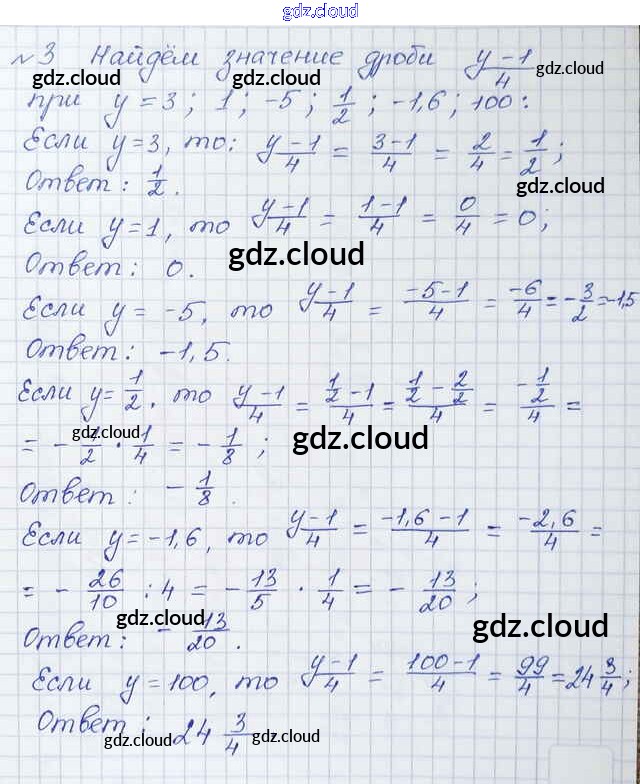 gdz.cloud
№3 Найдём значение дроби (y-1)/4
gdz.cloud gdz.cloud gdz.cloud
при y = 3; 1; -5; 1/2; -1,6; 100:
Если y=3, то: (y-1)/4 = (3-1)/4 = 2/4 = 1/2;
Ответ: 1/2. gdz.cloud
Если y=1, то (y-1)/4 = (1-1)/4 = 0/4 = 0;
gdz.cloud
Ответ: 0.
Если y = -5, то (y-1)/4 = (-5-1)/4 = -6/4 = -3/2 = -1,5
Ответ: -1,5.
Если y=1/2, то (y-1)/4 = (1/2 - 1)/4 = (1/2 - 2/2)/4 = (-1/2)/4 =
gdz.cloud gdz.cloud
= -1/2 · 1/4 = -1/8;
Ответ: -1/8.
Если y=-1,6, то (y-1)/4 = (-1,6-1)/4 = -2,6/4 =
= -26/10 : 4 = -13/5 · 1/4 = -13/20;
gdz.cloud gdz.cloud
Ответ: -13/20.
Если y=100, то (y-1)/4 = (100-1)/4 = 99/4 = 24 3/4;
Ответ: 24 3/4
gdz.cloud gdz.cloud